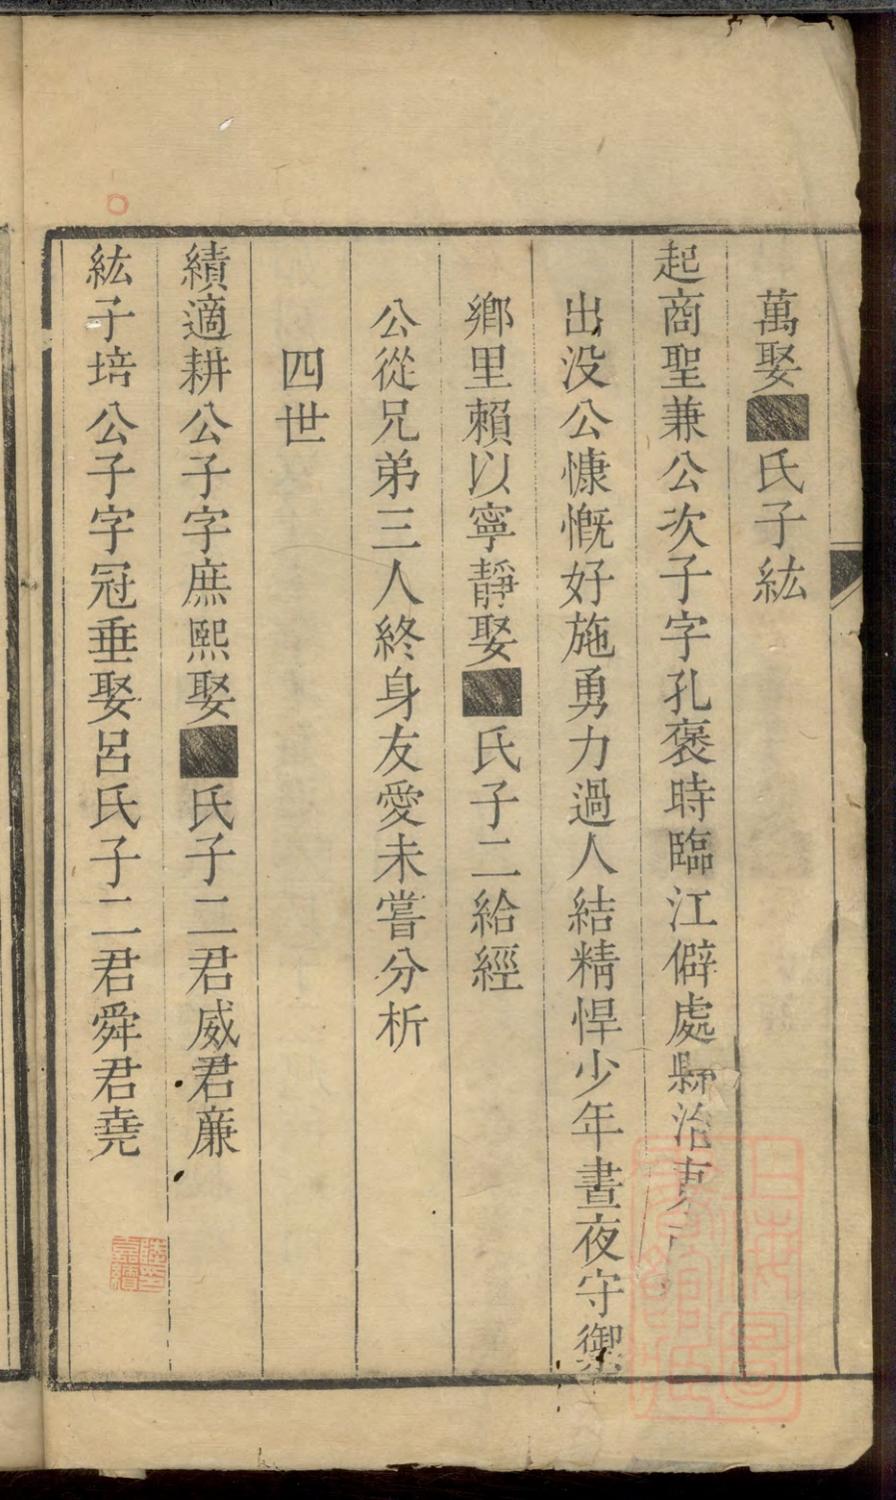 萬娶■氏子紘
起商聖兼公次子字孔褒時臨江僻處縣治東
出没公慷慨好施勇力過人結精悍少年晝夜守禦
鄉里賴以寧靜娶■氏子二給經
公從兄弟三人終身友愛未嘗分析
四世
績適耕公子字庶熙娶■氏子二君威君廉
紘子培公子字冠垂娶呂氏子二君舜君堯